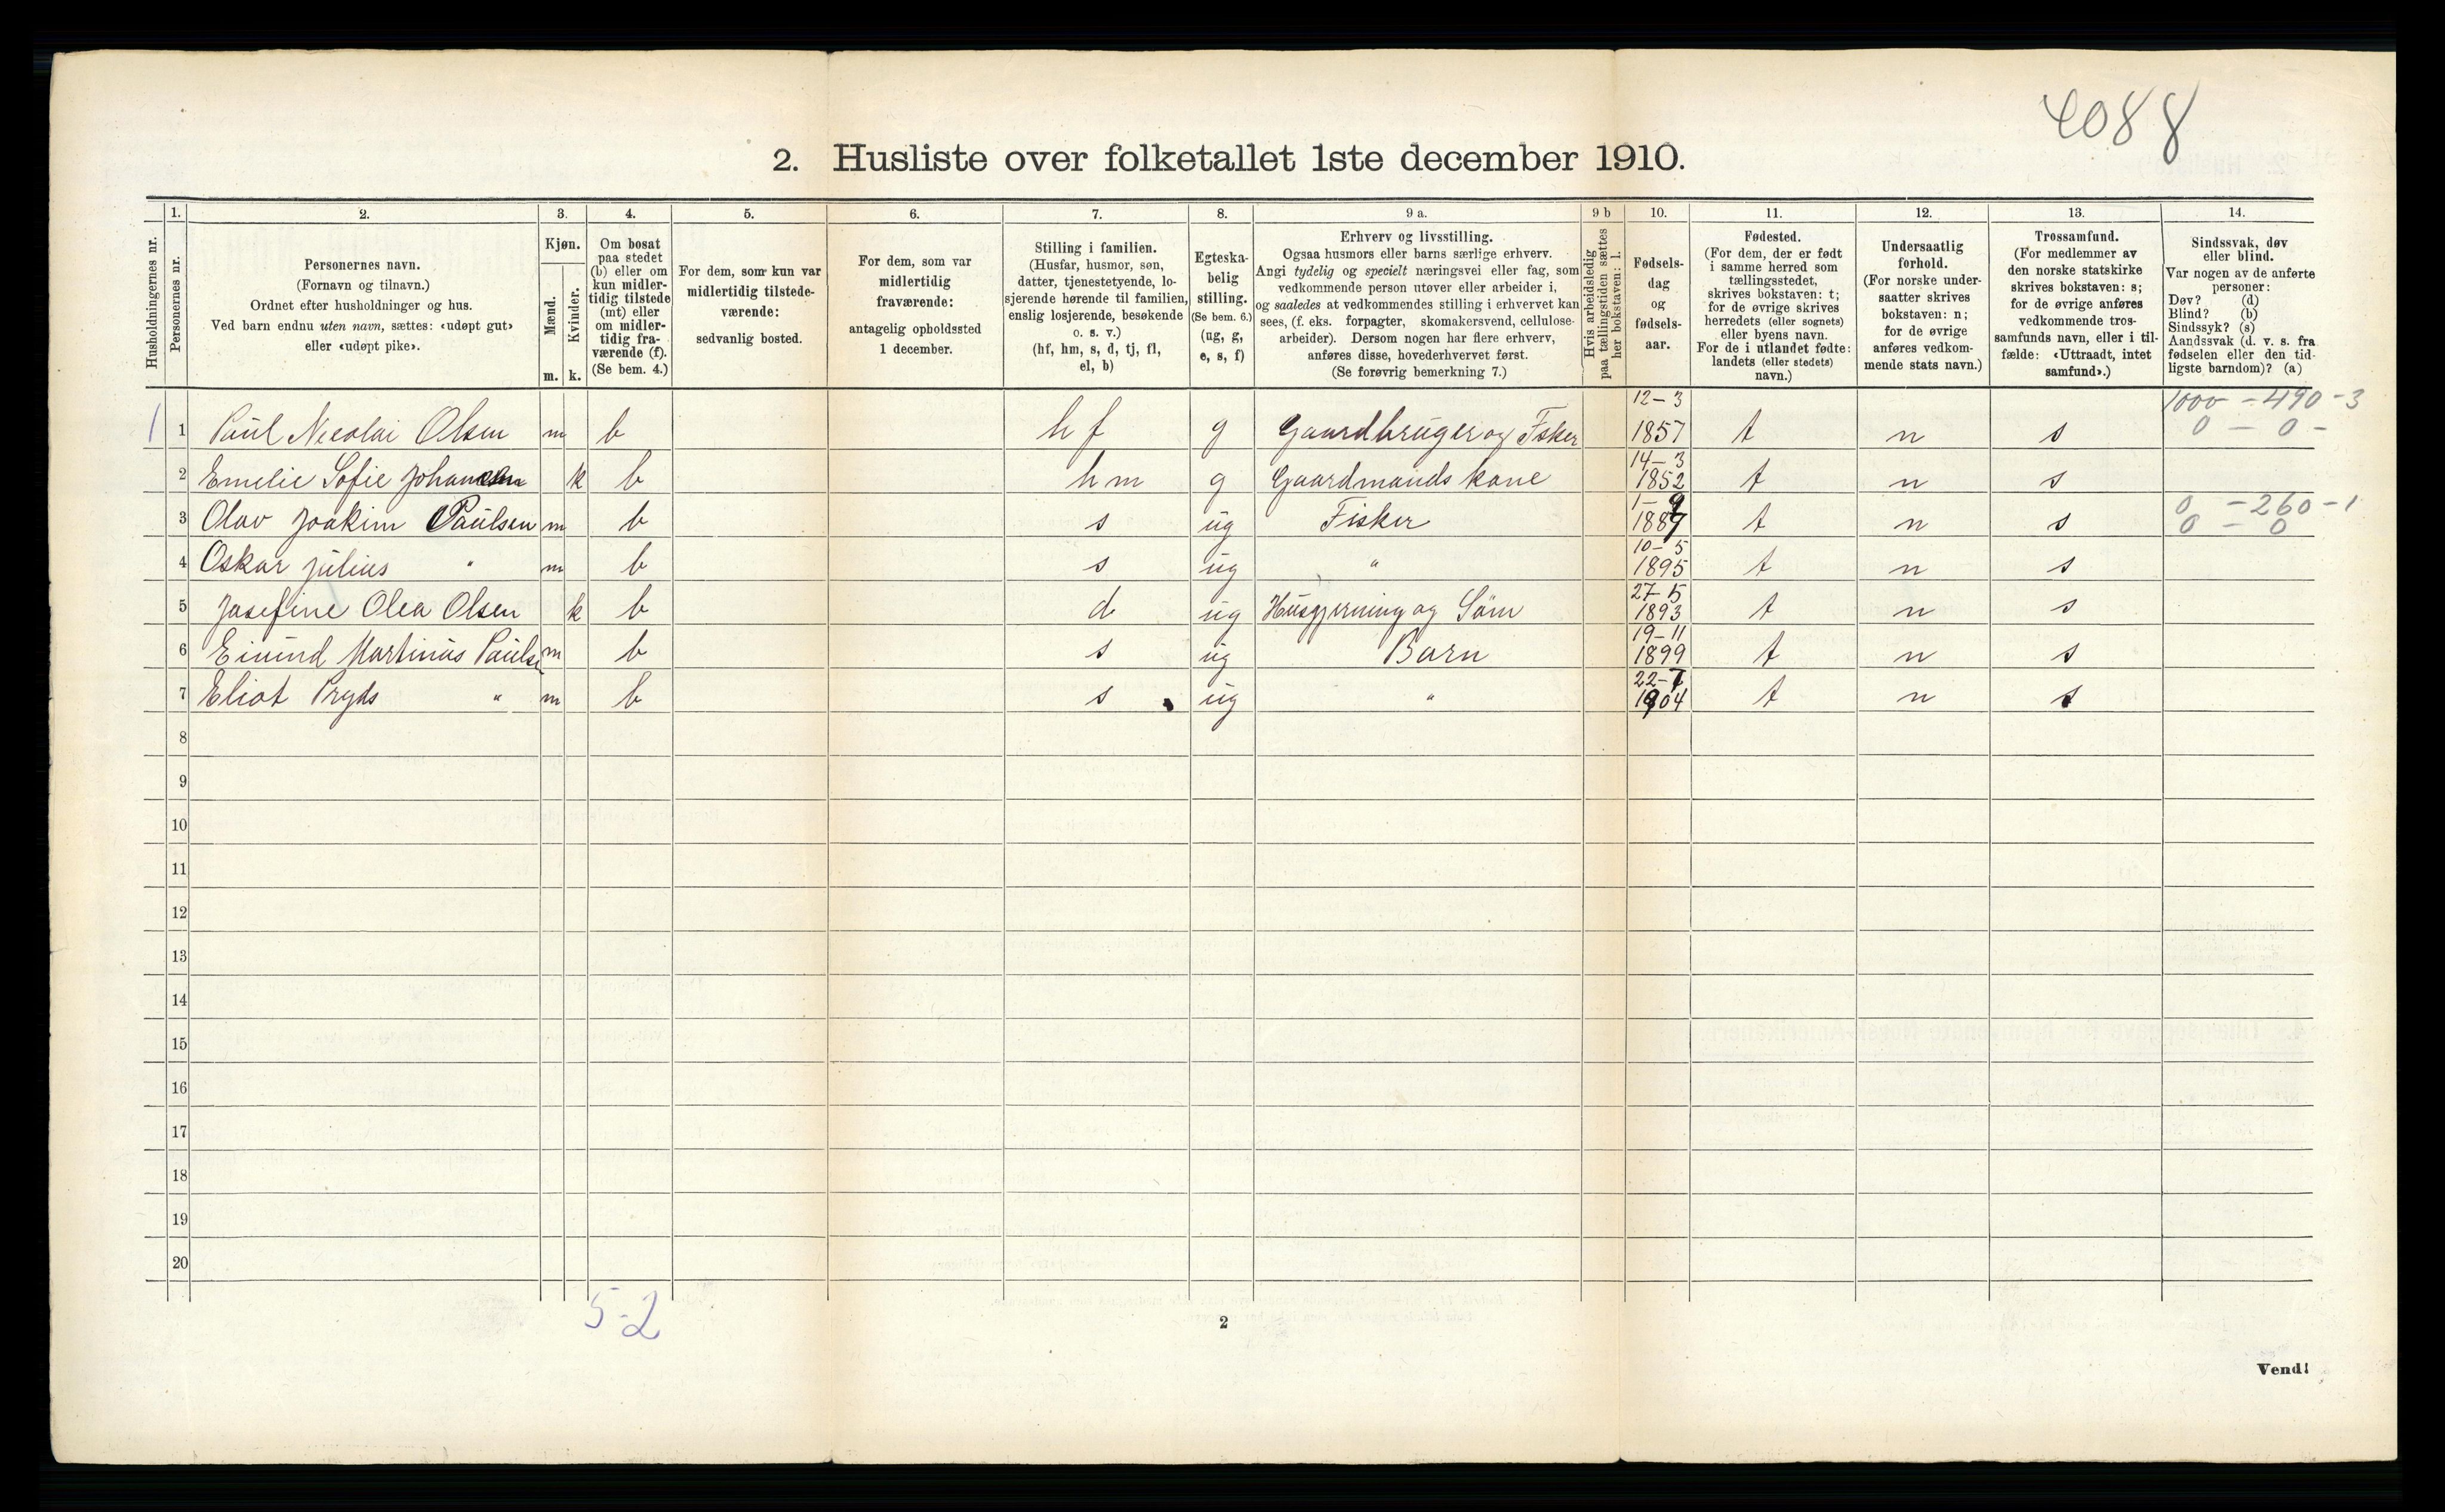 4088
2. Husliste over folketallet 1ste december 1910.
Husholdningernes nr.
1. Personernes nr.
2.
Personernes navn.
(Fornavn og tilnavn.)
Ordnet efter husholdninger og hus.
Ved barn endnu uten navn, sættes: «udøpt gut»
eller «udøpt pike».
3.
Kjøn.
Mænd.
m.
Kvinder.
k.
4.
Om bosat
paa stedet
(b) eller om
kun midler-
tidig tilstede
(mt) eller
om midler-
tidig fra-
værende (f).
(Se bem. 4.)
5.
For dem, som kun var
midlertidig tilstede-
værende:
sedvanlig bosted.
6.
For dem, som var
midlertidig
fraværende:
antagelig opholdssted
1 december.
7.
Stilling i familien.
(Husfar, husmor, søn,
datter, tjenestetyende, lo-
sjerende hørende til familien,
enslig losjerende, besøkende
o. s. v.)
(hf, hm, s, d, tj, fl,
el, b)
8.
Egteska-
belig
stilling.
(Se bem. 6.)
(ug, g,
e, s, f)
9 a.
Erhverv og livsstilling.
Ogsaa husmors eller barns særlige erhverv.
Angi tydelig og specielt næringsvei eller fag, som
vedkommende person utøver eller arbeider i,
og saaledes at vedkommendes stilling i erhvervet kan
sees, (f. eks. forpagter, skomakersvend, cellulose-
arbeider). Dersom nogen har flere erhverv,
anføres disse, hovederhvervet først.
(Se forøvrig bemerkning 7.)
9 b
Hvis arbeidsledig
paa tællingstiden sættes
her bokstaven: l.
10.
Fødsels-
dag
og
fødsels-
aar.
11.
Fødested.
(For dem, der er født
i samme herred som
tællingsstedet,
skrives bokstaven: t;
for de øvrige skrives
herredets (eller sognets)
eller byens navn.
For de i utlandet fødte:
landets (eller stedets)
navn.)
12.
Undersaatlig
forhold.
(For norske under-
saatter skrives
bokstaven: n;
for de øvrige
anføres vedkom-
mende stats navn.)
13.
Trossamfund.
(For medlemmer av
den norske statskirke
skrives bokstaven: s;
for de øvrige anføres
vedkommende tros-
samfunds navn, eller i til-
fælde: «Uttraadt, intet
samfund».)
14.
Sindssvak, døv
eller blind.
Var nogen av de anførte
personer:
Døv? (d)
Blind? (b)
Sindssyk? (s)
Aandssvak (d. v. s. fra
fødselen eller den tid-
ligste barndom)? (a)
1 1 Paul Nicolai Olsen m b h f g Gaardbruger og Fsker 12-3 1857 t n s 1000 - 490 - 3 0 - 0 -
2 Emelie Sofie Johansen k b h m g Gaardmands kone 14-3 1852 t n s
3 Olav Joakim Paulsen m b s ug Fisker 1-9 1889 t n s 0 - 260 - 1 0 - 0
4 Oskar Julius " m b s ug " 10-5 1895 t n s
5 Josefine Olea Olsen k b d ug Husgjerning og Söm 27-5 1893 t n s
6 Eivind Martinus Paulsen m b s ug Barn 19-11 1899 t n s
7 Eliot Pryds " m b s ug " 22-7 1904 t n s
8
9
10
11
12
13
14
15
16
17
18
19
20
5-2
2
Vend!